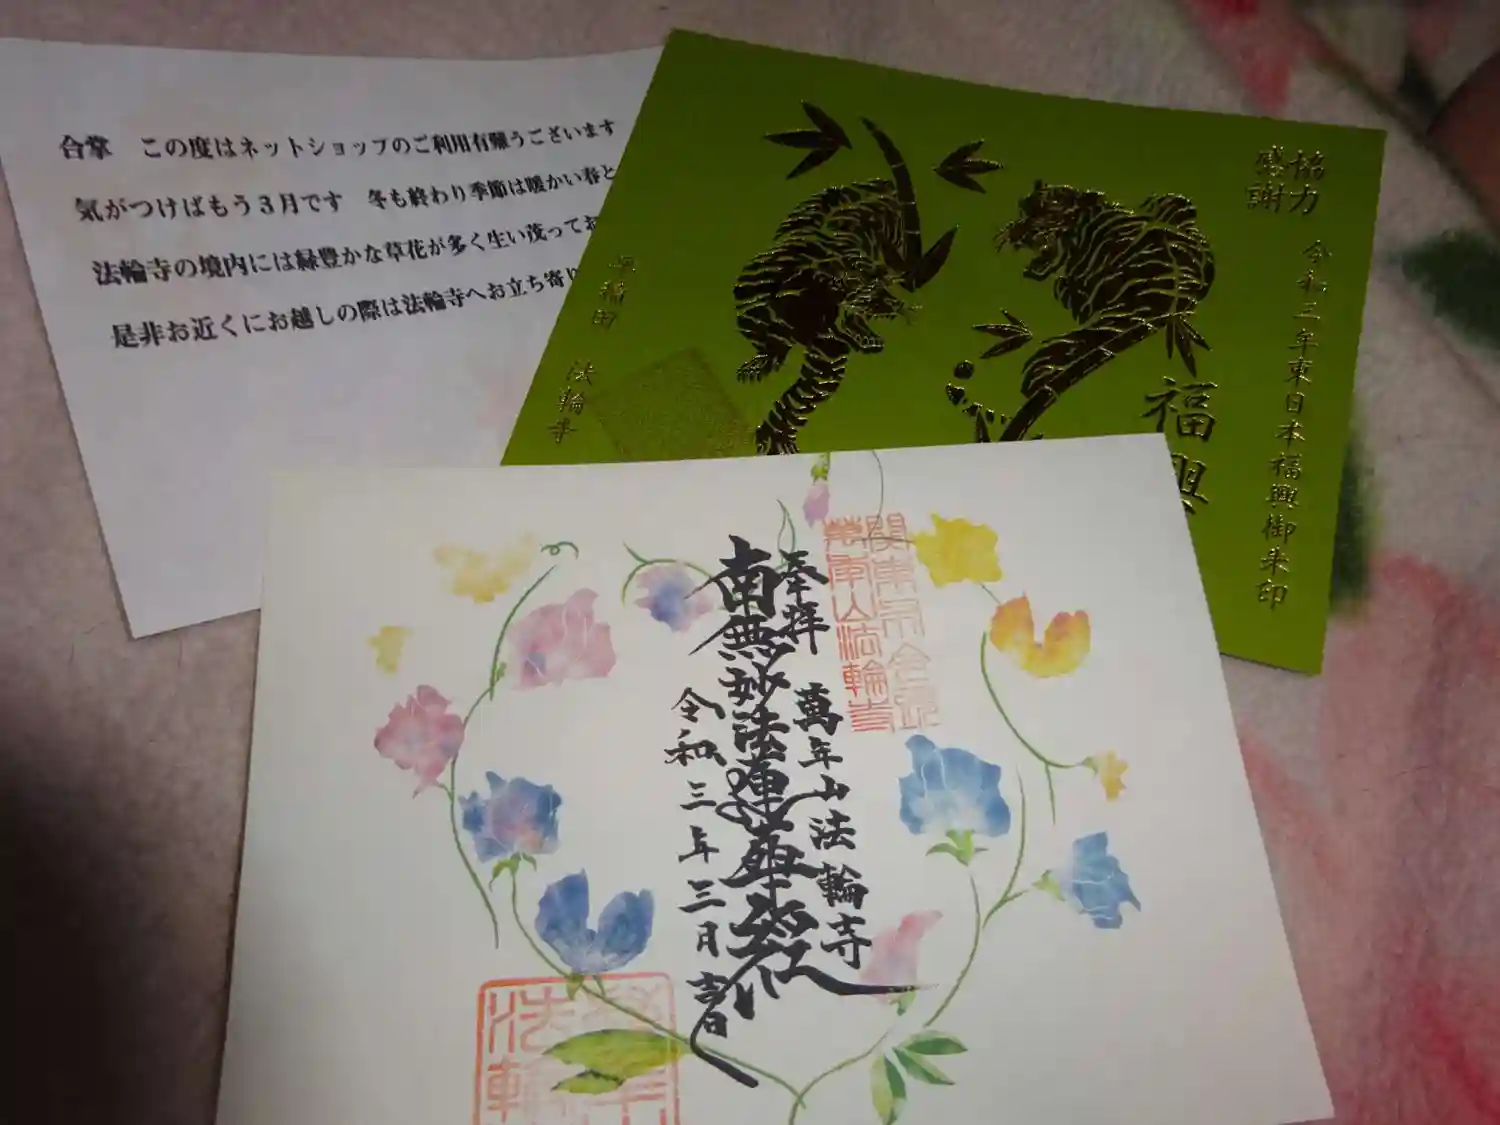 合掌　この度はネットショップのご利用有難うございます
気がつけばもう３月です　冬も終わり季節は暖かい春と
法輪寺の境内には緑豊かな草花が多く生い茂ってお
是非お近くにお越しの際は法輪寺へお立ち寄り
協力
感謝
令和三年東日本福興御朱印
福興
早稲田　法輪寺
奉拝　萬年山法輪寺
南無妙法蓮華経
令和三年三月吉日
萬年山法輪寺
法輪